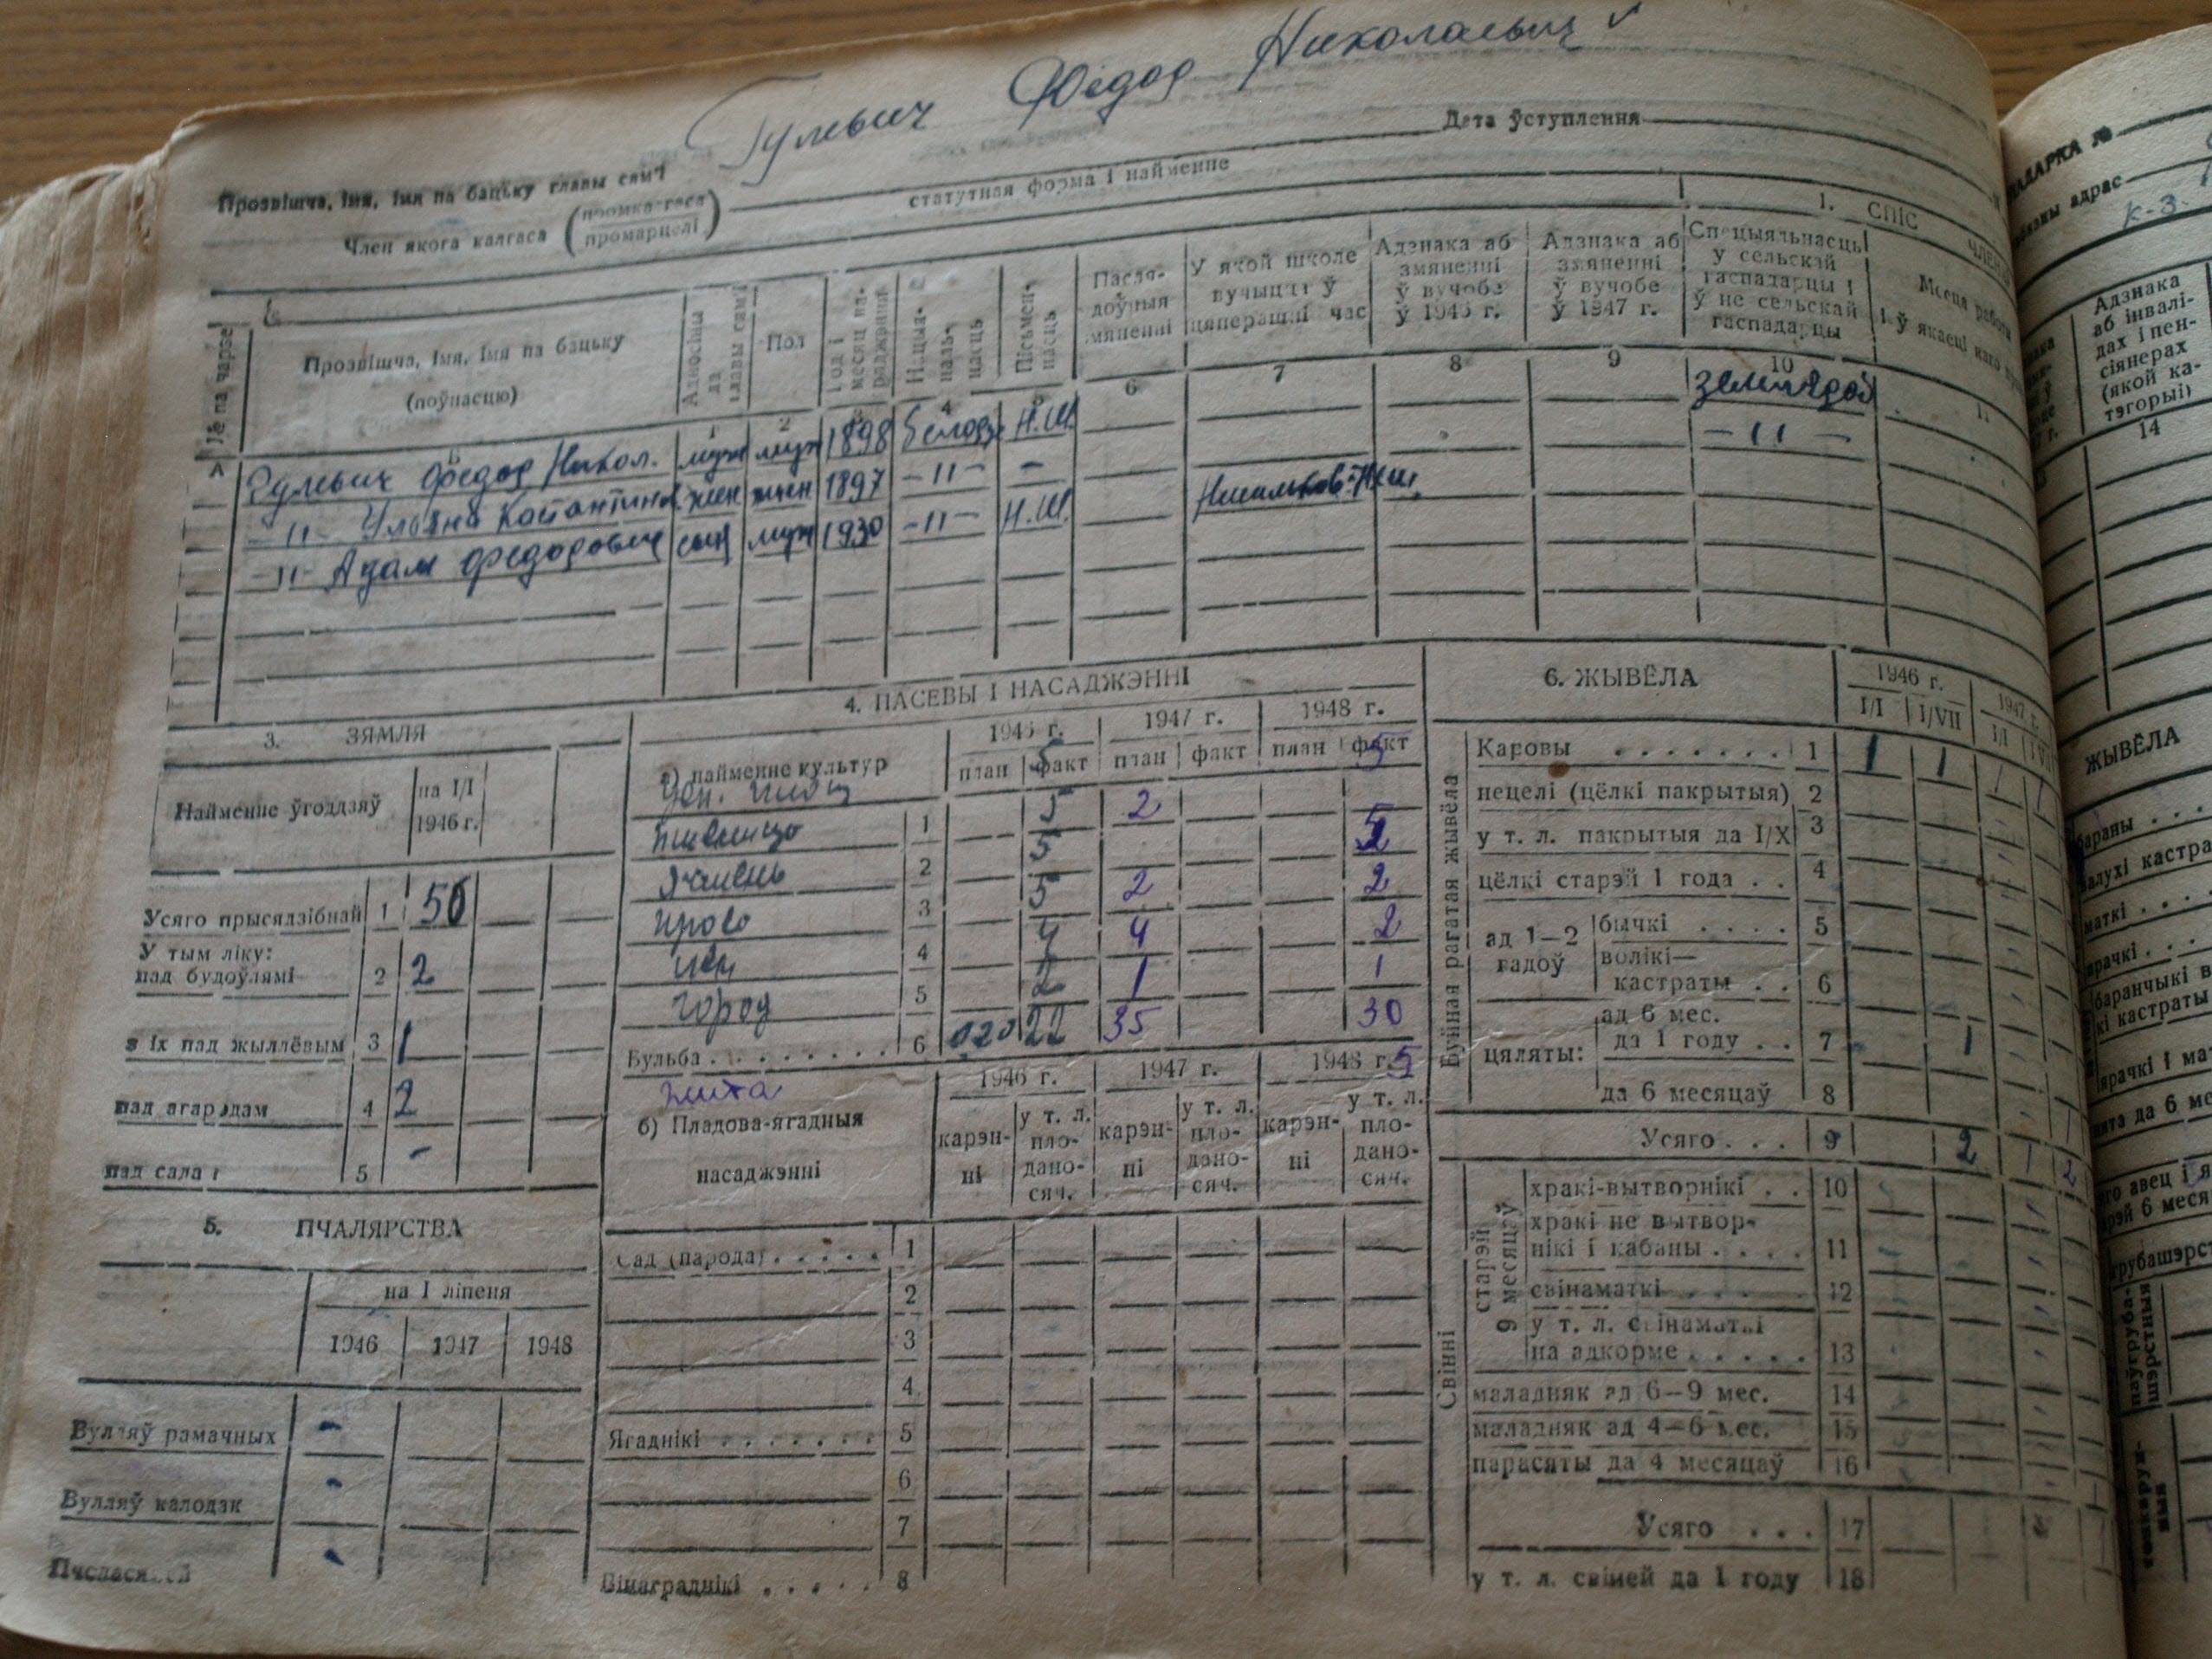 Гулевич Федор Николаевич
Прозвішча, імя, імя па бацьку главы сям'і
Дата ўступлення
Член якога калгаса (промкалгаса промарцелі)
статутная форма і найменне
1. СПІС ЧЛЕНАЎ
№ па чарзе
Прозвішча, імя, імя па бацьку (поўнасцю)
Адносіны да главы сям'і
Пол
Год і месяц нараджэння
Нацыянальнасць
Пісьменнасць
У якой школе вучыцца ў цяперашні час
Адзнака аб змяненні ў вучобе ў 1946 г.
Адзнака аб змяненні ў вучобе ў 1947 г.
Спецыяльнасць у сельскай гаспадарцы і ў не сельскай гаспадарцы
Месца работы
А Б 1 2 3 4 5 6 7 8 9 10 11
Гулевич Федор Никол. муж муж 1898 Белор Н.Ш. земляроб
-"- Ульяна жен жен 1897 -"- - -"-
-"- Адам Федорович сын муж 1930 -"- Н.Ш.
3. ЗЯМЛЯ
Найменне ўгоддзяў на I/I 1946 г.
Усяго прысядзібнай 1 50
У тым ліку:
пад будоўлямі 2 2
з іх пад жыллёвым 3 1
пад агародам 4 2
пад садам 5 -
5. ПЧАЛЯРСТВА
на 1 ліпеня
1946 1947 1948
Вулляў рамачных -
Вулляў калодак -
Пчоласямей -
4. ПАСЕВЫ І НАСАДЖЭННІ
а) найменне культур
1946 г. 1947 г. 1948 г.
план факт план факт план факт
5 5
пшеница 1 5 2
ячмень 2 5 5
просо 3 5 2 2
лён 4 4 4 2
город 5 2 1 1
Бульба 6 0,20 22 35 30
жита 5
б) Пладова-ягадныя насаджэнні
1946 г. 1947 г. 1948 г.
карэнні у т. л. пладаносяч. карэнні у т. л. пладаносяч. карэнні у т. л. пладаносяч.
Сад (парода) 1
2
3
4
Ягаднікі 5
6
7
Вінаграднікі 8
6. ЖЫВЁЛА
1946 г. 1947 г.
I/I I/VII I/I I/VII
Буйная рагатая жывёла
Каровы 1 1 1 1 1
нецелі (цёлкі пакрытыя) 2
у т. л. пакрытыя да I/X 3
цёлкі старэй 1 года 4
ад 1—2 гадоў
бычкі 5
волікі—кастраты 6
цяляты:
ад 6 мес. да 1 году 7 1
да 6 месяцаў 8 1
Усяго 9 2 1 2
Свінні
старэй 9 месяцаў
хракі-вытворнікі 10
хракі не вытворнікі і кабаны 11
свінаматкі 12
у т. л. свінаматкі на адкорме 13
маладняк ад 6—9 мес. 14
маладняк ад 4—6 мес. 15
парасяты да 4 месяцаў 16
Усяго 17
у т. л. свіней да 1 году 18
адрас
К-з.
Адзнака аб інвалідах і пенсіянерах (якой катэгорыі)
14
ЖЫВЁЛА